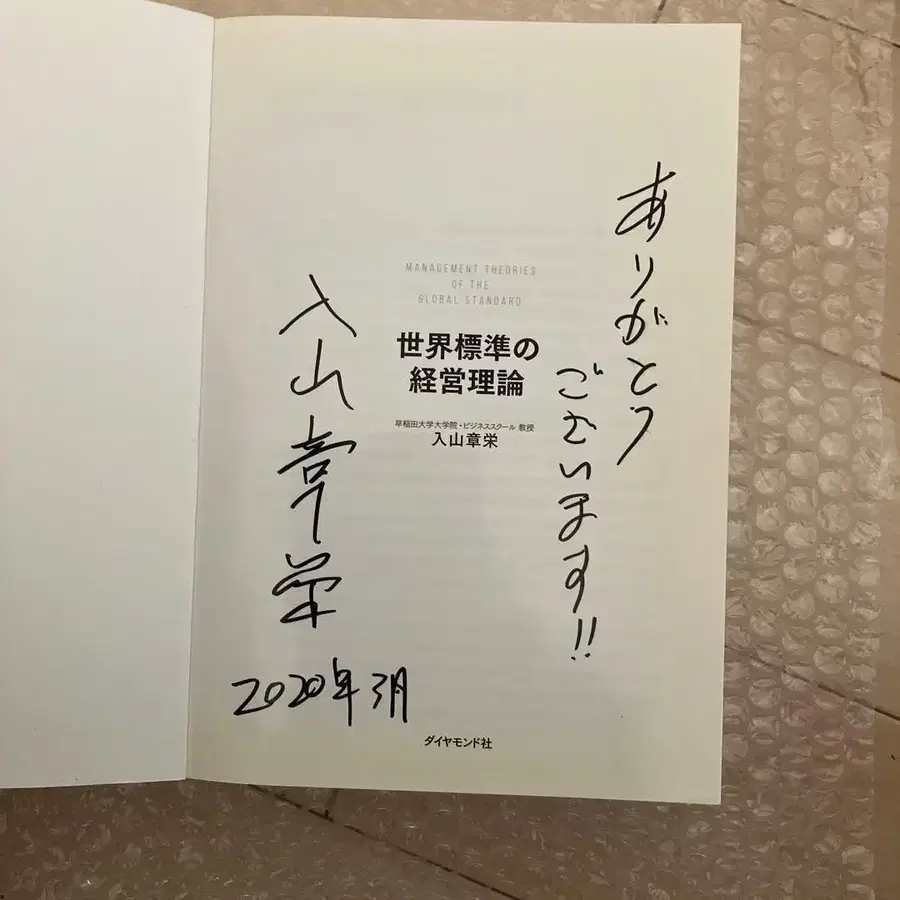 ありがとう
ございます!!
MANAGEMENT THEORIES
OF THE
GLOBAL STANDARD
世界標準の
経営理論
早稲田大学大学院・ビジネススクール 教授
入山章栄
入山章栄
2020年3月
ダイヤモンド社